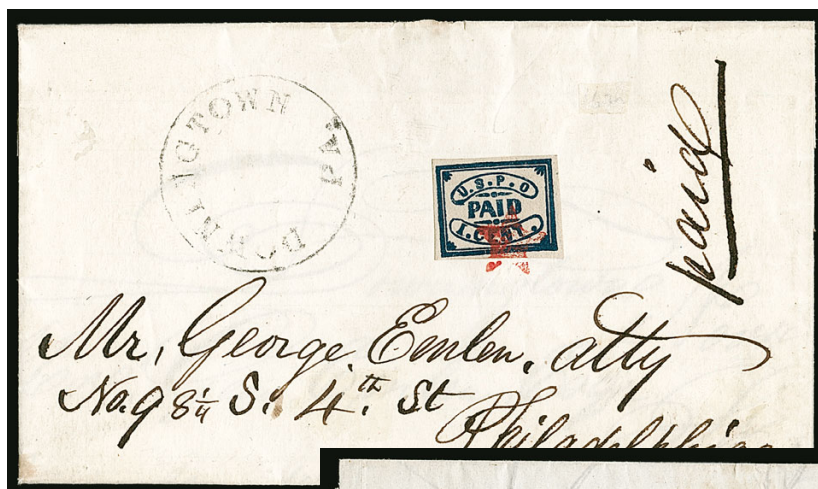 DOWNINGTOWN PA.
U.S.P.O
PAID
1.CENT.
paid
Mr. George Emlen, atty
No. 98¼ S. 4th. St
Philadelphia